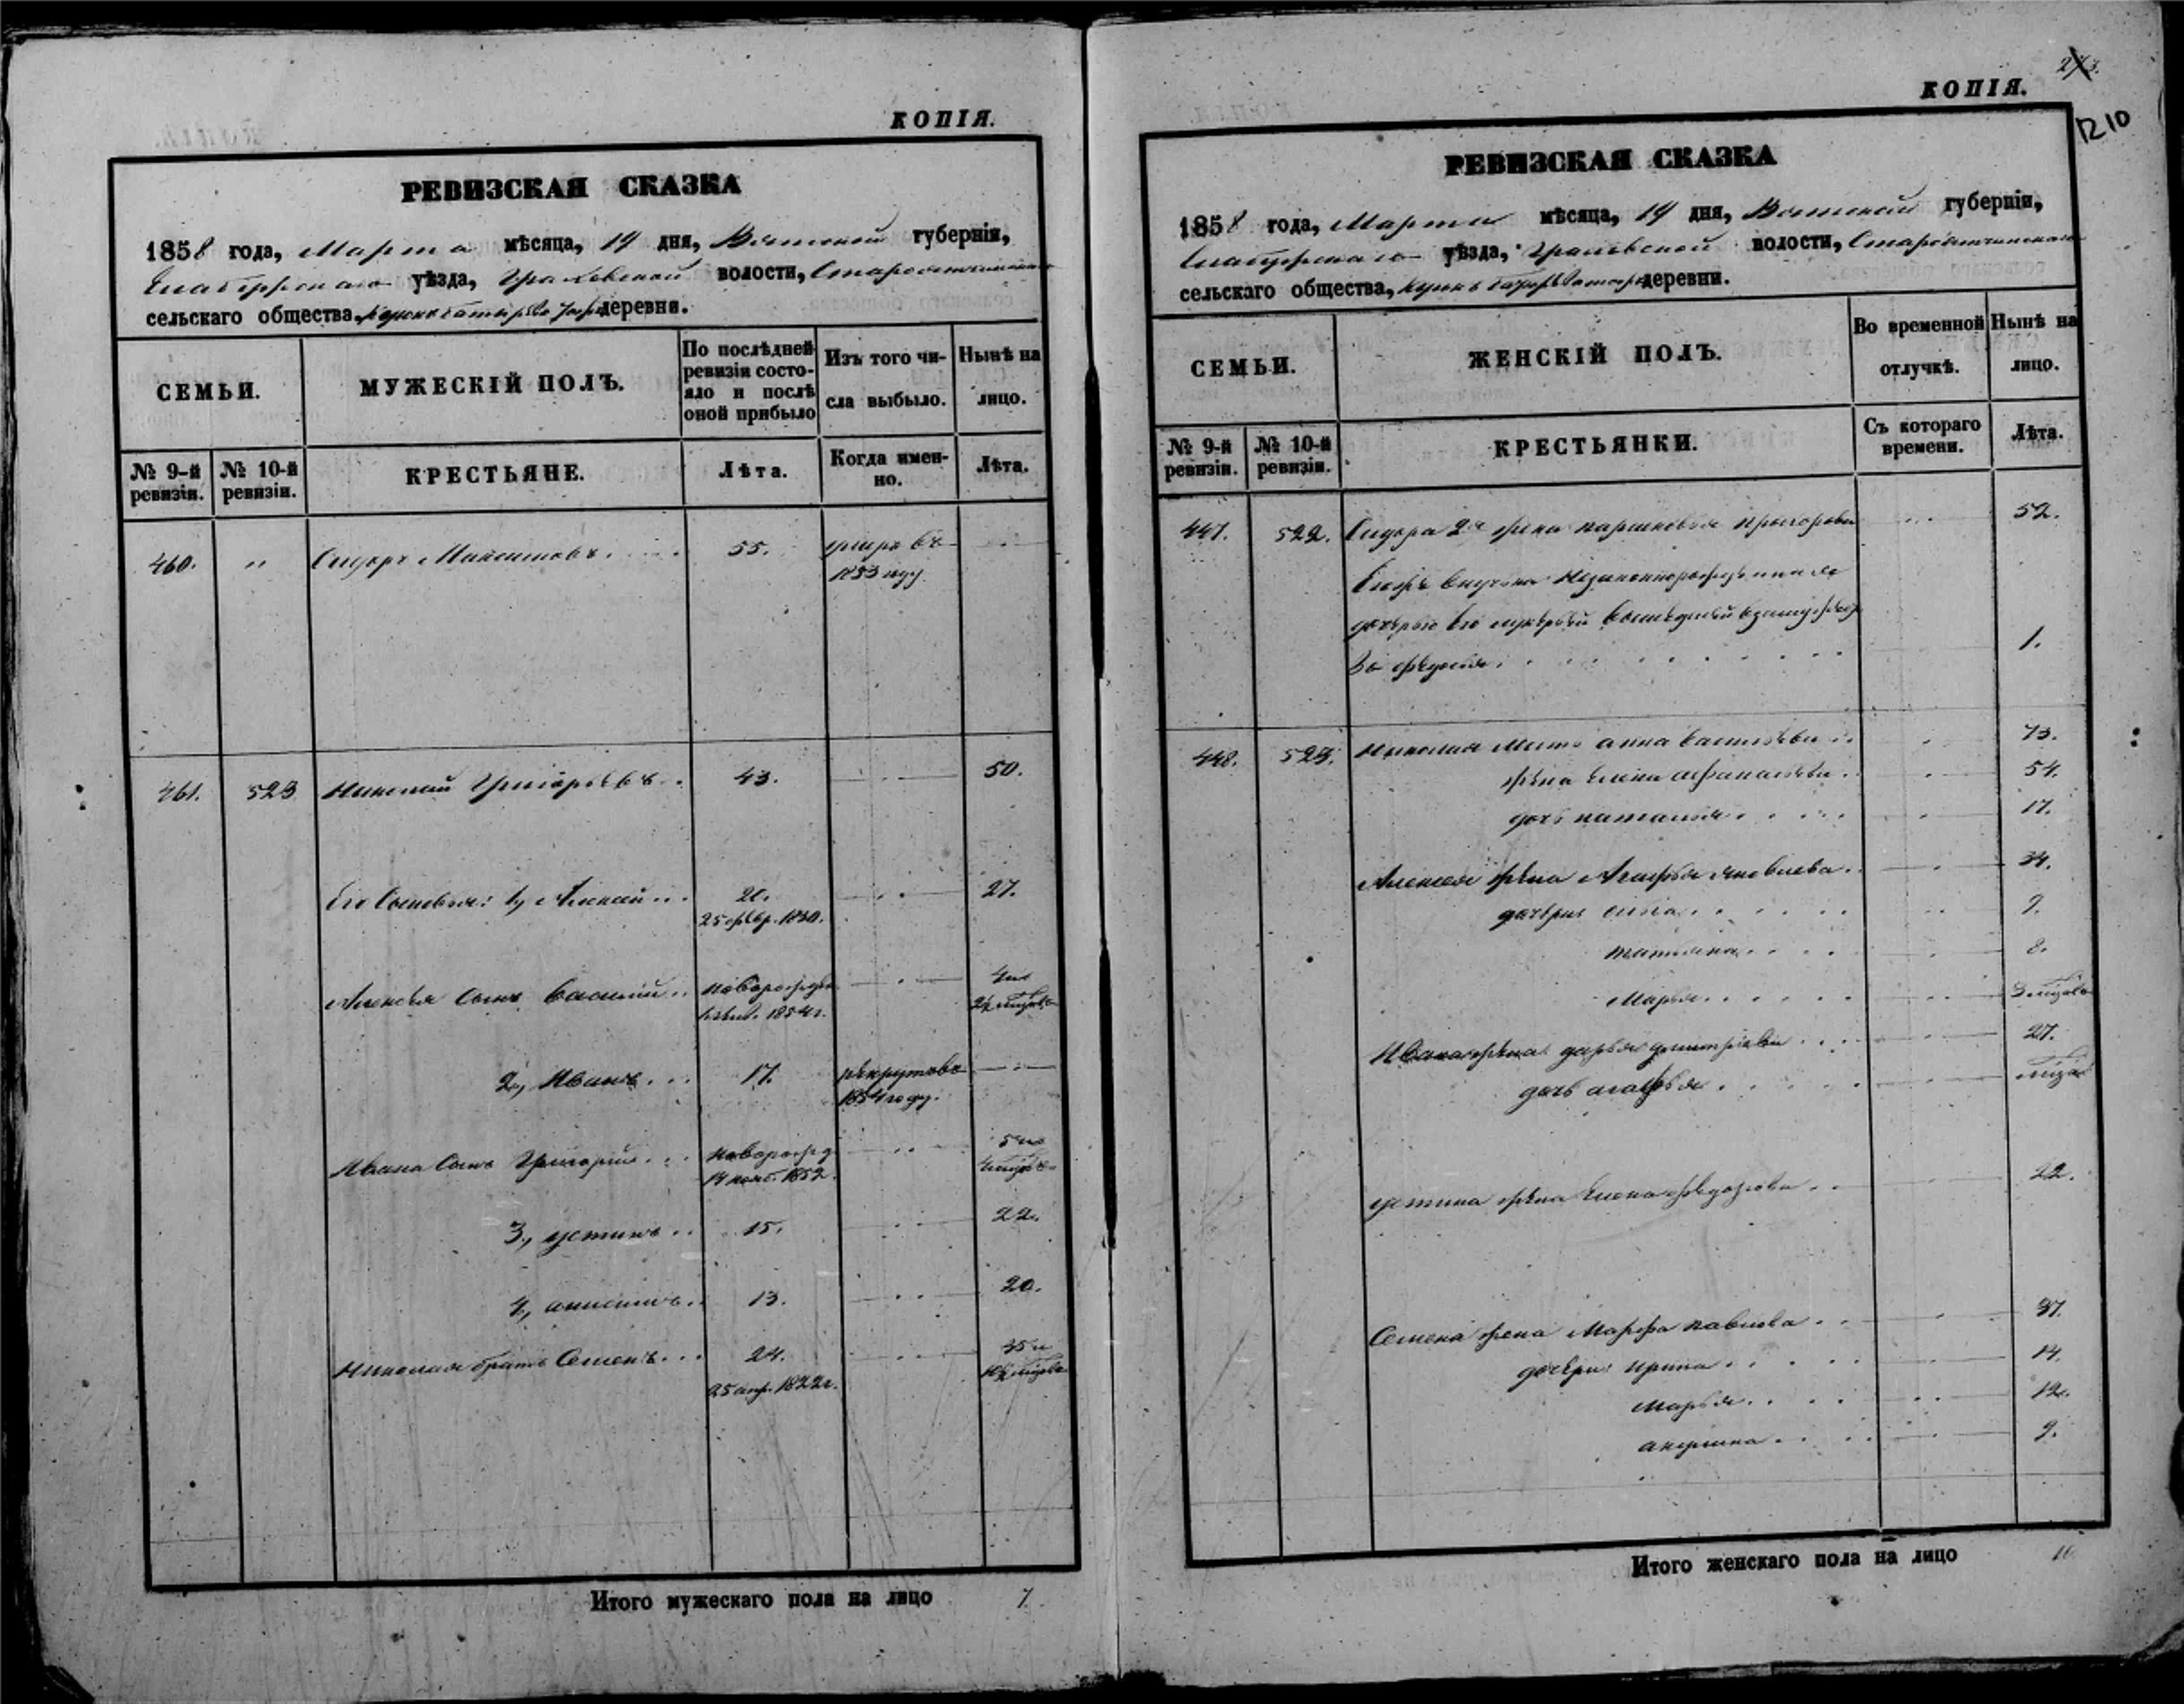 КОПІЯ.
РЕВИЗСКАЯ СКАЗКА
1858 года, Марта мѣсяца, 14 дня, Вятской губерніи,
Елабугскаго уѣзда, Граховской волости,
сельскаго общества, деревни.
СЕМЬИ.
МУЖЕСКІЙ ПОЛЪ.
По послѣдней ревизіи состояло и послѣ оной прибыло
Изъ того числа выбыло.
Нынѣ на лицо.
№ 9-й ревизіи.
№ 10-й ревизіи.
КРЕСТЬЯНЕ.
Лѣта.
Когда именно.
Лѣта.
460. " Сидоръ Максимовъ 55. умеръ въ
1853 году
461. 523 Николай Григорьевъ 43. 50.
Его сыновья: 1, Алексей 20. 27.
25 февр. 1830.
Алексея сынъ Василий новорожден 4 и
1854 г.
2, Иванъ 17. рекрутовъ
1854 году.
Ивана сынъ Григорий новорожд 5 и
14 нояб. 1852
3, устинъ 15. 22.
4, 13. 20.
Николая братъ Семенъ 24. 35 и
25 апр. 1822 г.
Итого мужескаго пола на лицо 7.
КОПІЯ.
273.
1210
РЕВИЗСКАЯ СКАЗКА
1858 года, Марта мѣсяца, 14 дня, Вятской губерніи,
Елабугскаго уѣзда, Граховской волости,
сельскаго общества, деревни.
СЕМЬИ.
ЖЕНСКІЙ ПОЛЪ.
Во временной отлучкѣ.
Нынѣ на лицо.
№ 9-й ревизіи.
№ 10-й ревизіи.
КРЕСТЬЯНКИ.
Съ котораго времени.
Лѣта.
447. 522. Сидора 2я жена 52.
незаконнорожденная
дочерью его
федосья 1.
448. 523. Николая мать анна васильева 73.
жена Елена афанасьева 54.
дочь наталья 17.
Алексея жена Агафья яковлева 34.
дочери 9.
татьяна 8.
Марья 3
Ивана жена дарья дмитриева 27.
дочь агафья
устина жена Елена федорова 22.
Семена жена Марфа павлова 37.
дочери ирина 14.
марья 12.
акулина 9.
Итого женскаго пола на лицо 16